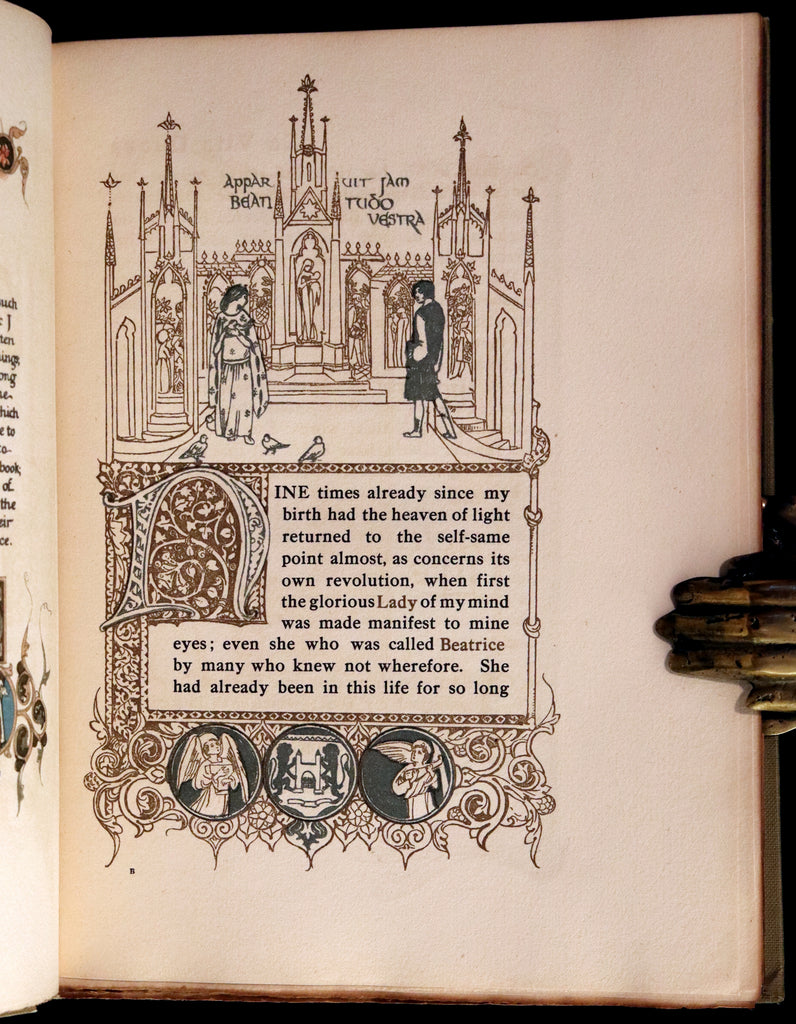 uch
J
ten
ings,
ong
ne-
hich
e to
to-
book,
of
the
eir
ce.
APPARUIT JAM
BEATITUDO
VESTRA
NINE times already since my
birth had the heaven of light
returned to the self-same
point almost, as concerns its
own revolution, when first
the glorious Lady of my mind
was made manifest to mine
eyes; even she who was called Beatrice
by many who knew not wherefore. She
had already been in this life for so long
B